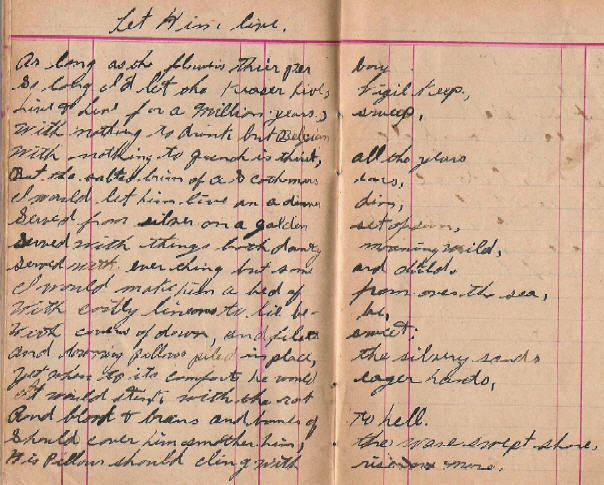 Let Him live.
As long as the flowers thier per
So long I'd let the Kaiser live,
Live & live for a Million years,
With nothing to drink but Belgian
With nothing to quench is thirst,
But the salted brim of a
I would let him live on a dinner
Served from silver on a golden
Served with things both dainty
Served with everching but some
I would make him a bed of
With costly linens to lie be-
With covers of down, and filets
and downy pillows piled in place,
Yet when to its comforts he would
It would stink with the rot
And blood & brains and bones of
Should cover him smother him,
His Pillow should cling with
vigil keep,
sweep,
all the years
dim,
set of sun,
and
from over the sea,
be,
sweet;
the silvery sands
eager hands,
to hell.
the wave swept shore,
more.